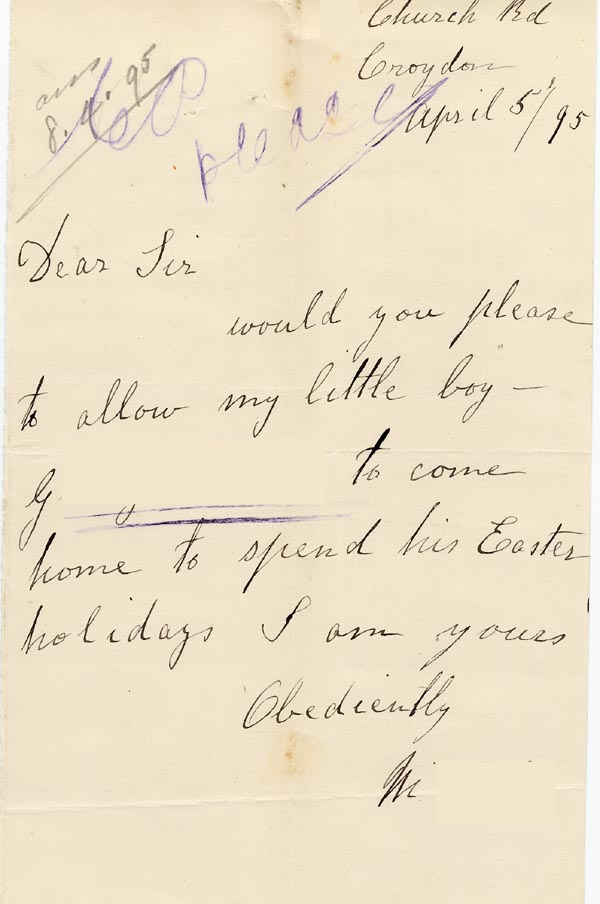 Church Rd
Croydon
April 5/95
ans
8.4.95
please
Dear Sir
would you please
to allow my little boy —
G to come
home to spend his Easter
holidays I am yours
Obediently
M